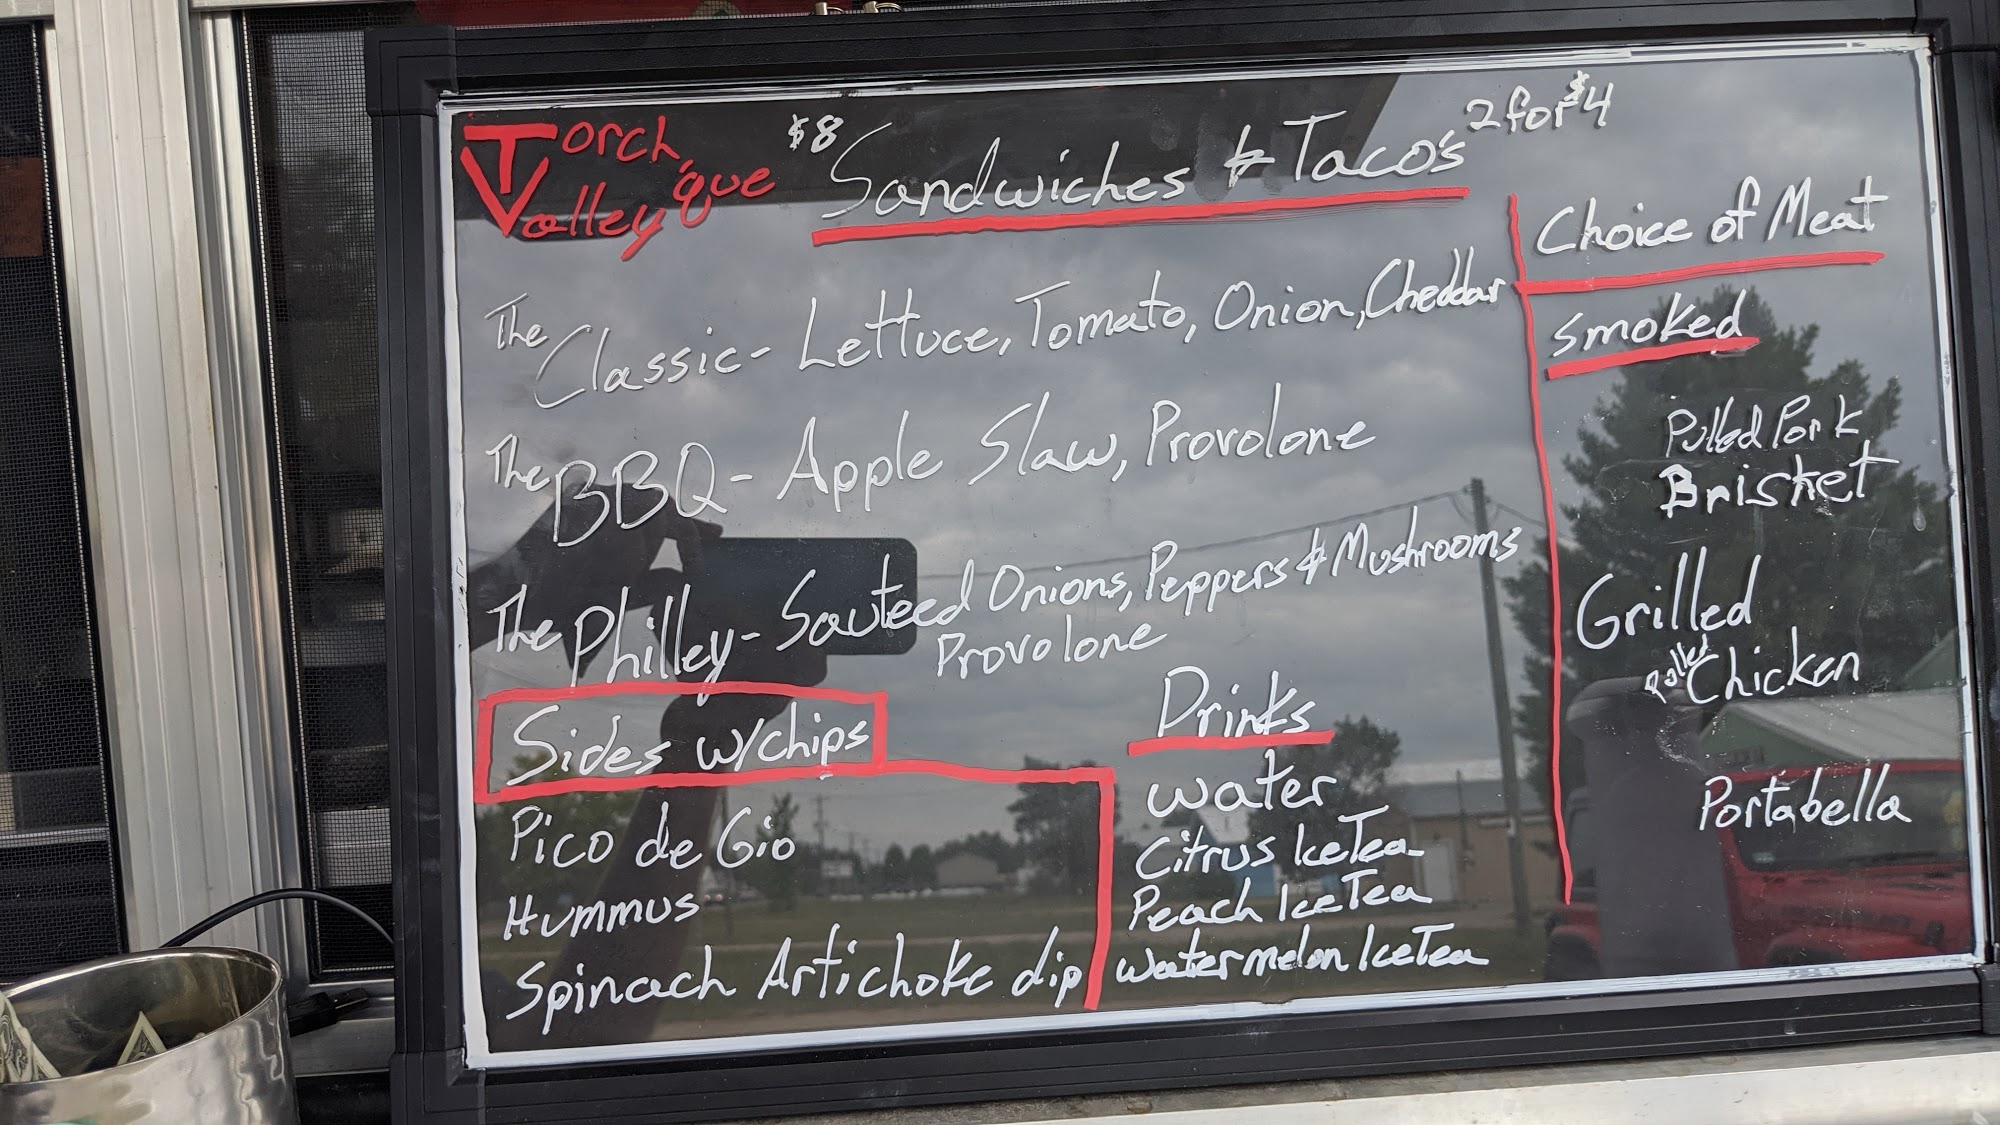 Torch
Valley 'que
$8 Sandwiches & Taco's 2 for $4
The Classic - Lettuce, Tomato, Onion, Cheddar
The BBQ - Apple Slaw, Provolone
The Philley - Sauteed Onions, Peppers & Mushrooms
Provolone
Choice of Meat
Smoked
Pulled Pork
Brisket
Grilled
Pulled Chicken
Portabella
Sides w/chips
Pico de Gio
Hummus
Spinach Artichoke dip
Drinks
Water
Citrus Ice Tea
Peach Ice Tea
Watermelon Ice Tea